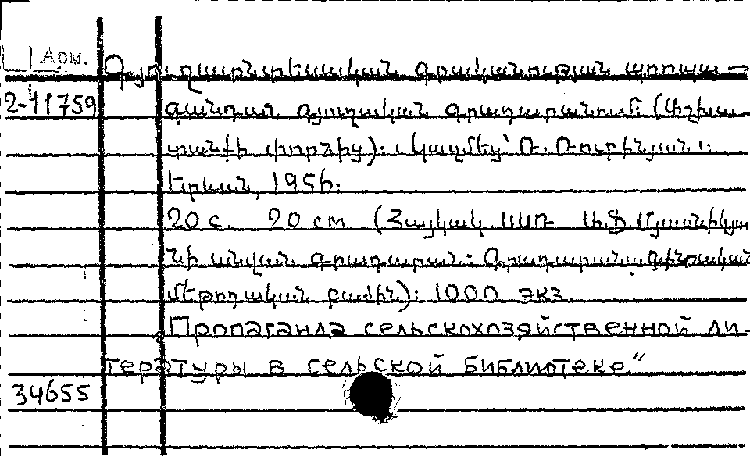 Арм.
Գյուղատնտեսական գրականության պրոպա-
2-11759
գանդան գյուղական գրադարանում (Աշխա
տանքի փորձից): Կազմեց՝ Ռ.
Երևան, 1956:
20 с. 20 см (Հայկական ՍՍՌ Ա. Ֆ. Մյասնիկյա
նի անվան գրադարան: Գրադարանա-գիտական
մեթոդական բաժին): 1000 экз.
„Пропаганда сельскохозяйственной ли-
тературы в сельской библиотеке“
34655